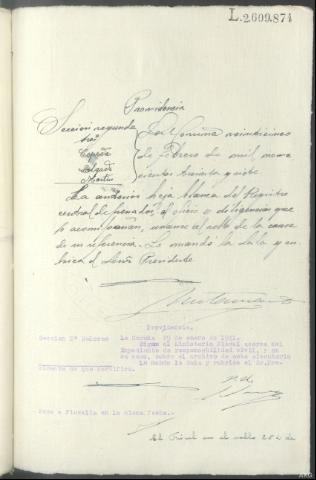 L.2609.874
Providencia
Sección segunda
Sres
Cepeda
Salgado
En Coruña veinticinco
de febrero de mil nove
cientos treinta y siete
La anterior hoja blanca del Registro
central de penados, oficio y diligencias que
lo acompañan, unanse al rollo de la causa
de su referencia. Lo mandó la Sala y ru-
brica el Señor Presidente
Providencia.
Seccion 2ª
La Coruña 29 de enero de 1951.
Sigue al Ministerio Fiscal acerca del
Expediente de responsabilidad civil, y en
su caso, sobre el archivo de esta ejecutoria
Lo manda la Sala y rubrica el Sr.Pre-
sidente de que certifico.
Pasa a Fiscalia en la misma fecha.-